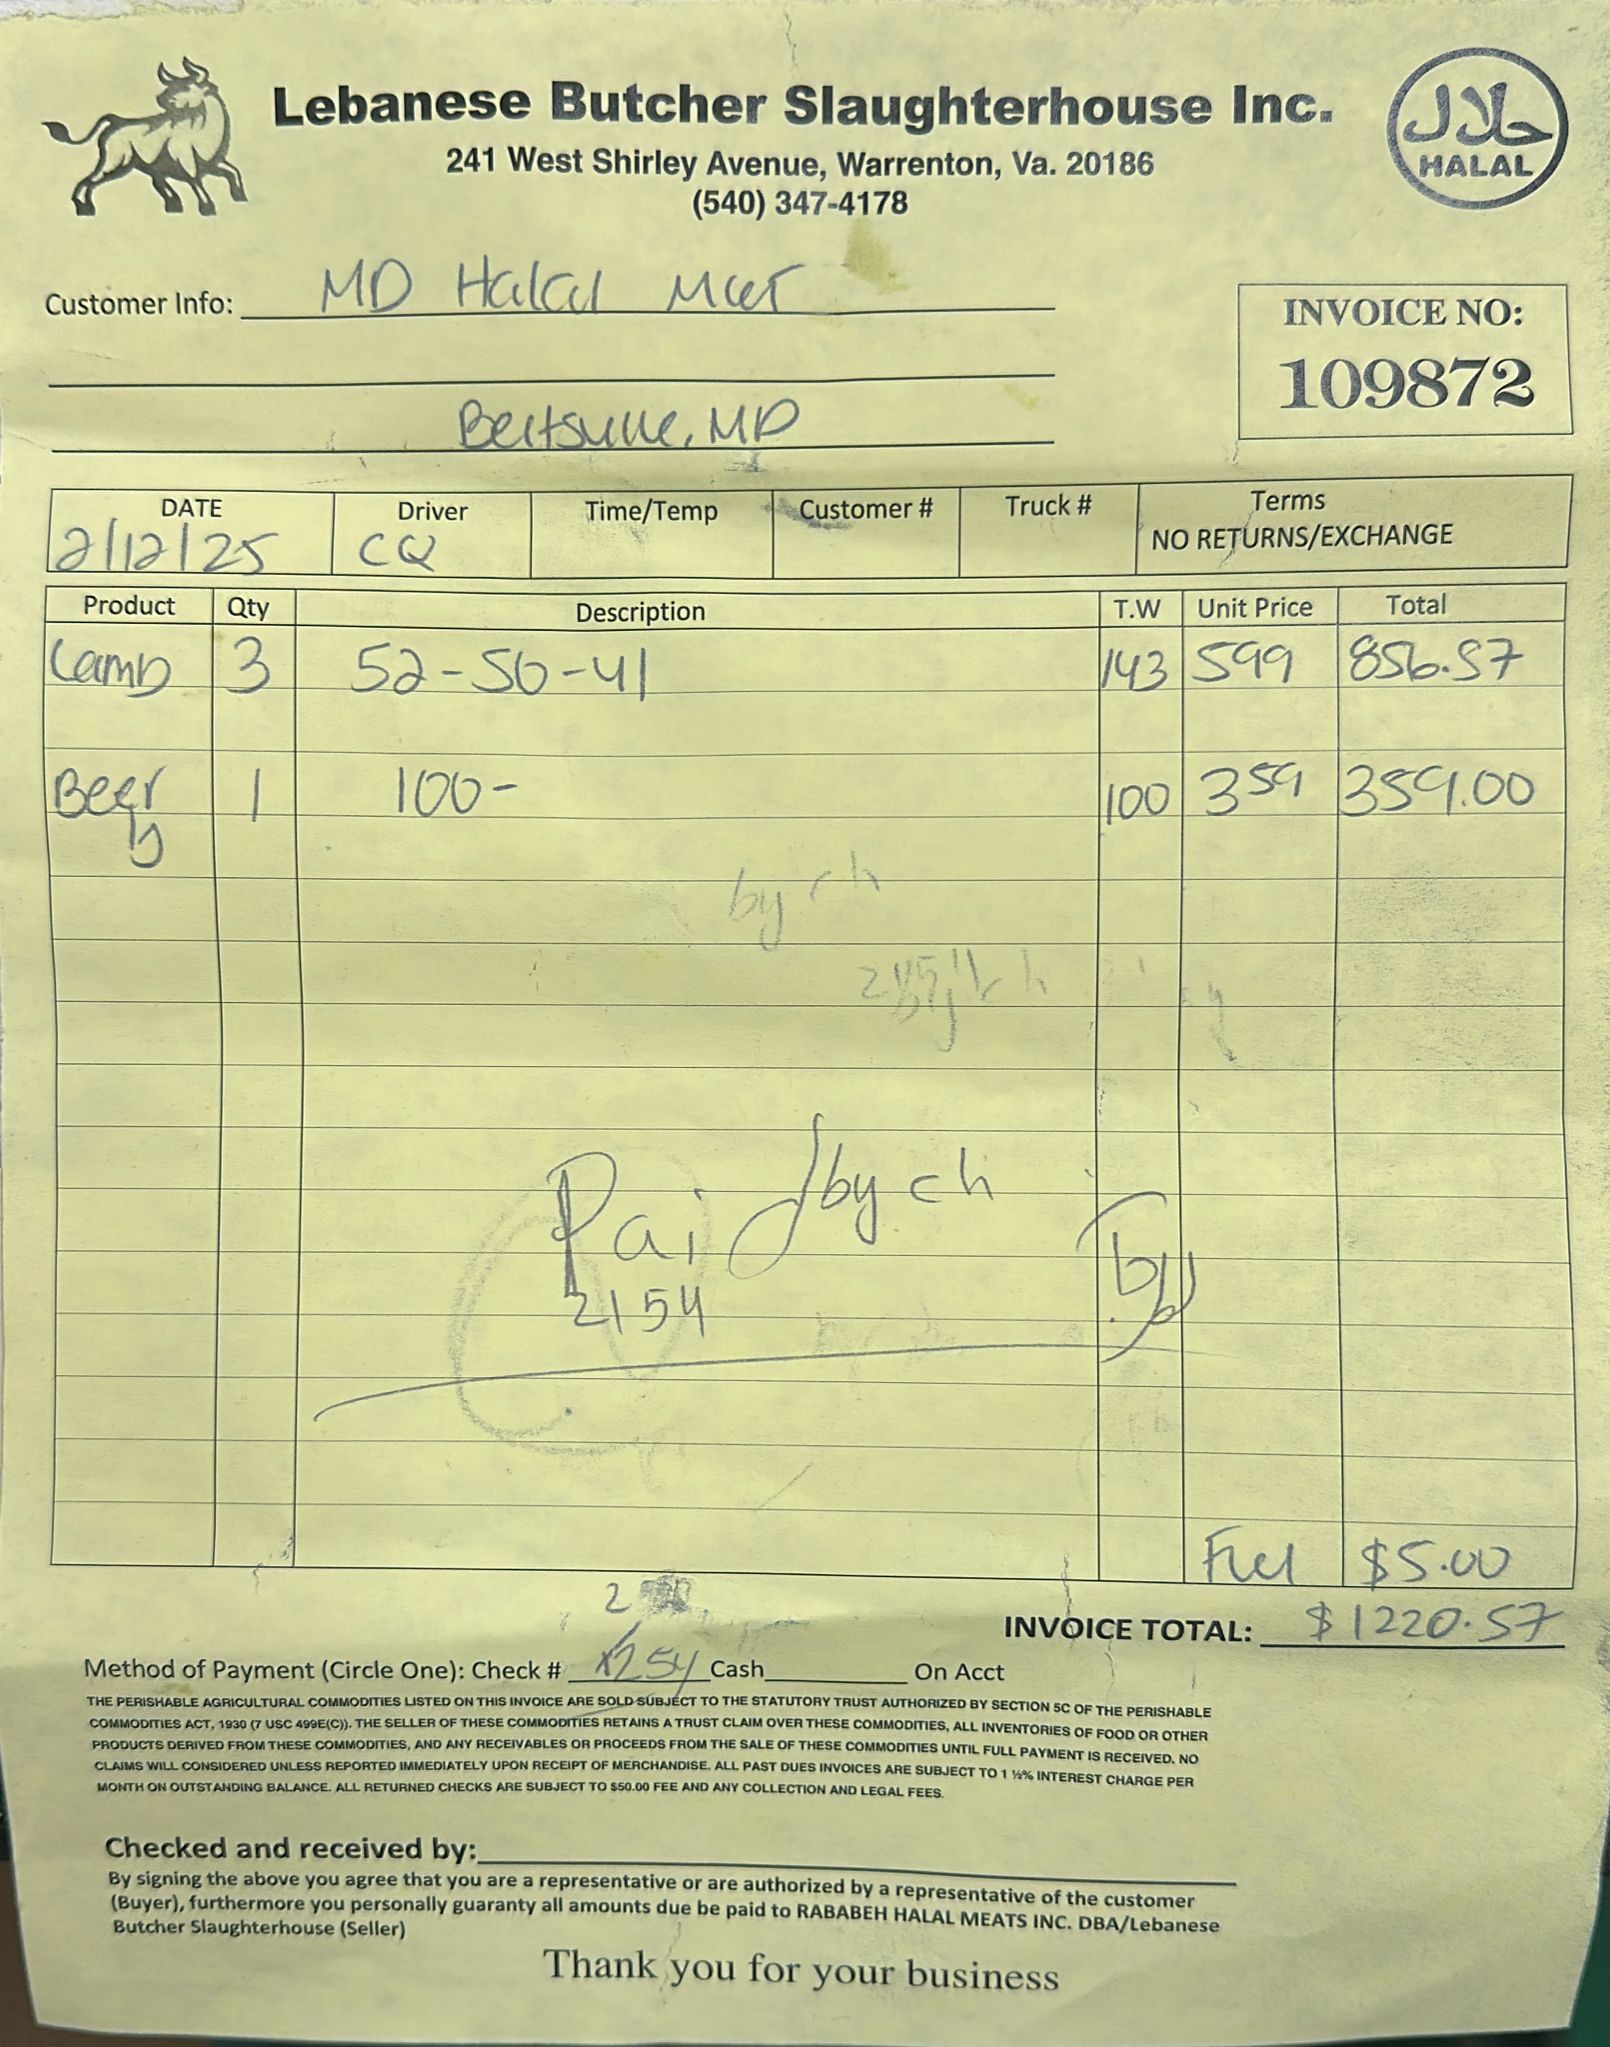 Lebanese Butcher Slaughterhouse Inc.
241 West Shirley Avenue, Warrenton, Va. 20186
(540) 347-4178
حلال
HALAL
Customer Info: MD Halal Meat
Beltsville, MD
INVOICE NO:
109872
DATE Driver Time/Temp Customer # Truck # Terms
2/12/25 CQ NO RETURNS/EXCHANGE
Product Qty Description T.W Unit Price Total
Lamb 3 52-50-41 143 599 856.57
Beef 1 100- 100 359 359.00
by ch
Paid by ch
2154
Fuel $5.00
INVOICE TOTAL: $1220.57
2
Method of Payment (Circle One): Check # Cash On Acct
THE PERISHABLE AGRICULTURAL COMMODITIES LISTED ON THIS INVOICE ARE SOLD SUBJECT TO THE STATUTORY TRUST AUTHORIZED BY SECTION 5C OF THE PERISHABLE
COMMODITIES ACT, 1930 (7 USC 499E(C)). THE SELLER OF THESE COMMODITIES RETAINS A TRUST CLAIM OVER THESE COMMODITIES, ALL INVENTORIES OF FOOD OR OTHER
PRODUCTS DERIVED FROM THESE COMMODITIES, AND ANY RECEIVABLES OR PROCEEDS FROM THE SALE OF THESE COMMODITIES UNTIL FULL PAYMENT IS RECEIVED. NO
CLAIMS WILL CONSIDERED UNLESS REPORTED IMMEDIATELY UPON RECEIPT OF MERCHANDISE. ALL PAST DUES INVOICES ARE SUBJECT TO 1 ½% INTEREST CHARGE PER
MONTH ON OUTSTANDING BALANCE. ALL RETURNED CHECKS ARE SUBJECT TO $50.00 FEE AND ANY COLLECTION AND LEGAL FEES.
Checked and received by:
By signing the above you agree that you are a representative or are authorized by a representative of the customer
(Buyer), furthermore you personally guaranty all amounts due be paid to RABABEH HALAL MEATS INC. DBA/Lebanese
Butcher Slaughterhouse (Seller)
Thank you for your business